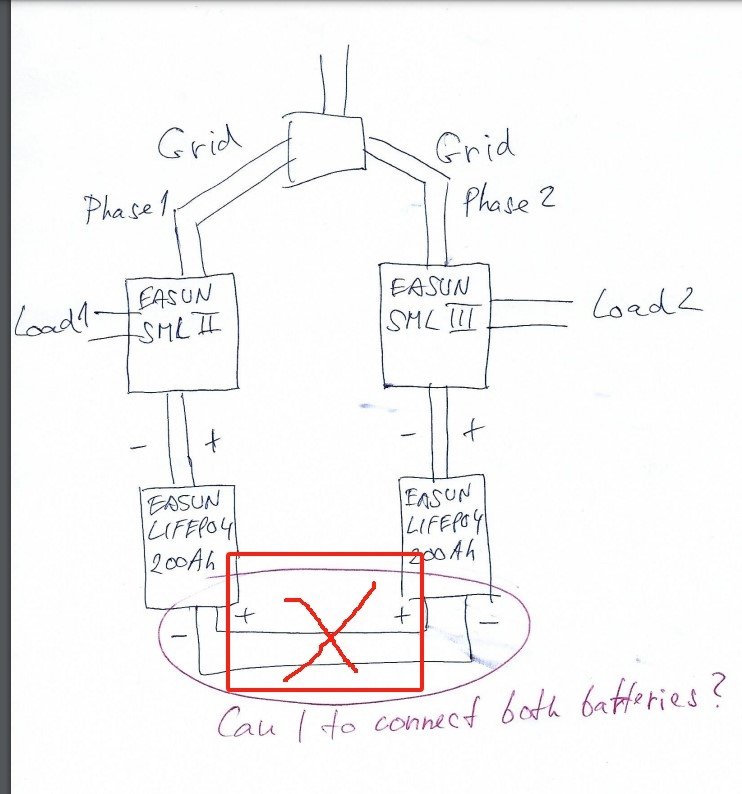 Grid
Grid
Phase1
Phase 2
EASUN
SML II
Load1
EASUN
SML III
Load2
-
+
-
+
EASUN
LIFEPO4
200Ah
EASUN
LIFEPO4
200Ah
-
+
+
-
Can I to connect both batteries?